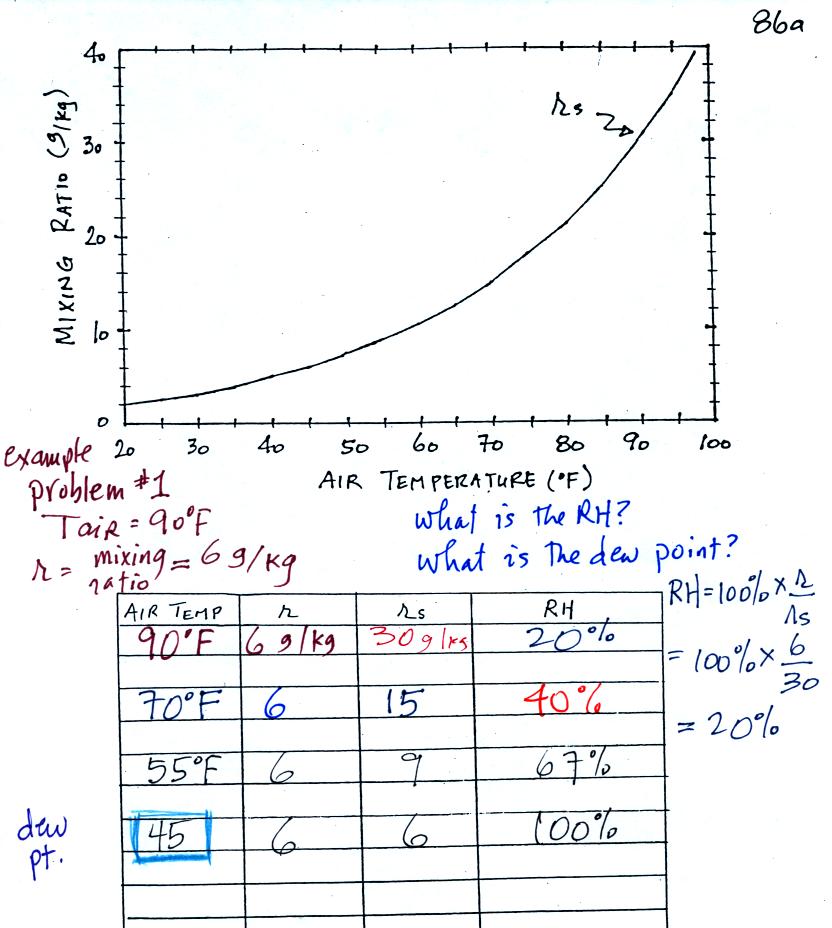 86a
40
30
20
10
0
MIXING RATIO (g/kg)
rs
20 30 40 50 60 70 80 90 100
AIR TEMPERATURE (°F)
example
problem #1
TAIR = 90°F
r = mixing ratio = 6 g/kg
what is the RH?
what is the dew point?
AIR TEMP r rs RH
90°F 6 g/kg 30 g/kg 20%
70°F 6 15 40%
55°F 6 9 67%
dew pt. 45 6 6 100%
RH = 100% × r/rs
= 100% × 6/30
= 20%